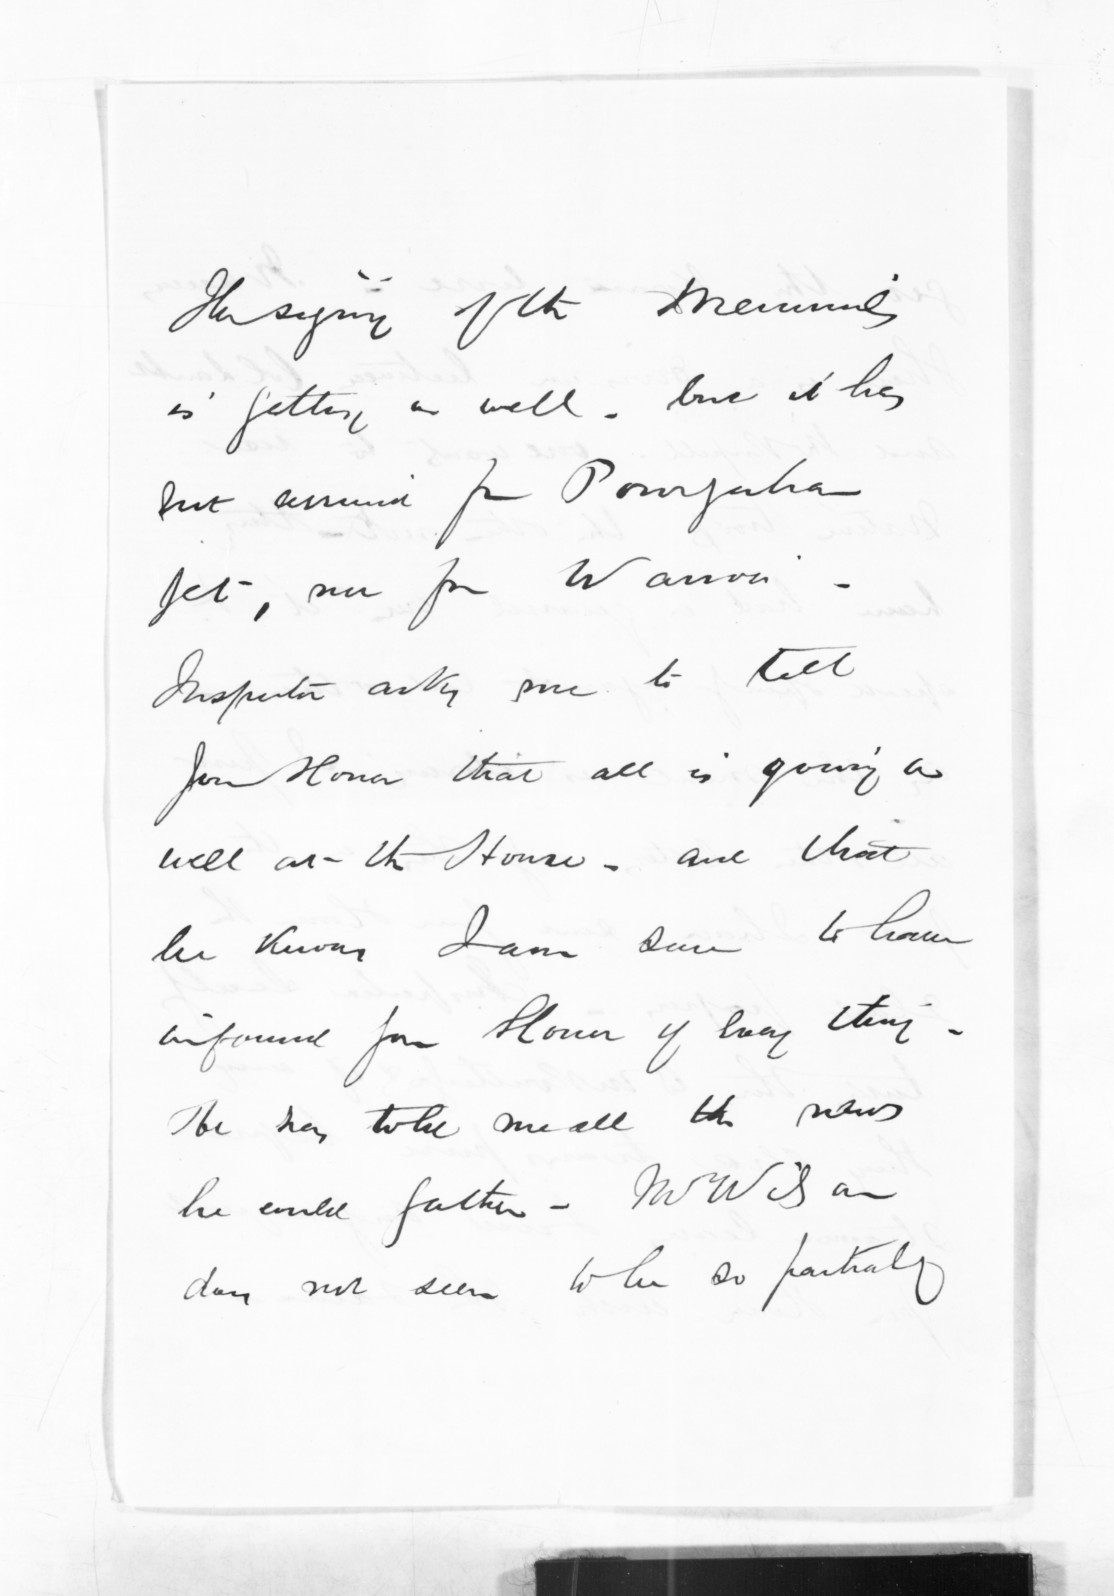 The signing of the Memorials
is getting on well - but it has
not arrived from Porongahau
yet, nor from Wairoa -
Inspector asks me to tell
Your Honor that all is going on
well at the House - and that
he knows I am sure to have
informed Your Honor of every thing -
He has told me all the news
he could gather - Mr Wilson
does not seem to be so partially